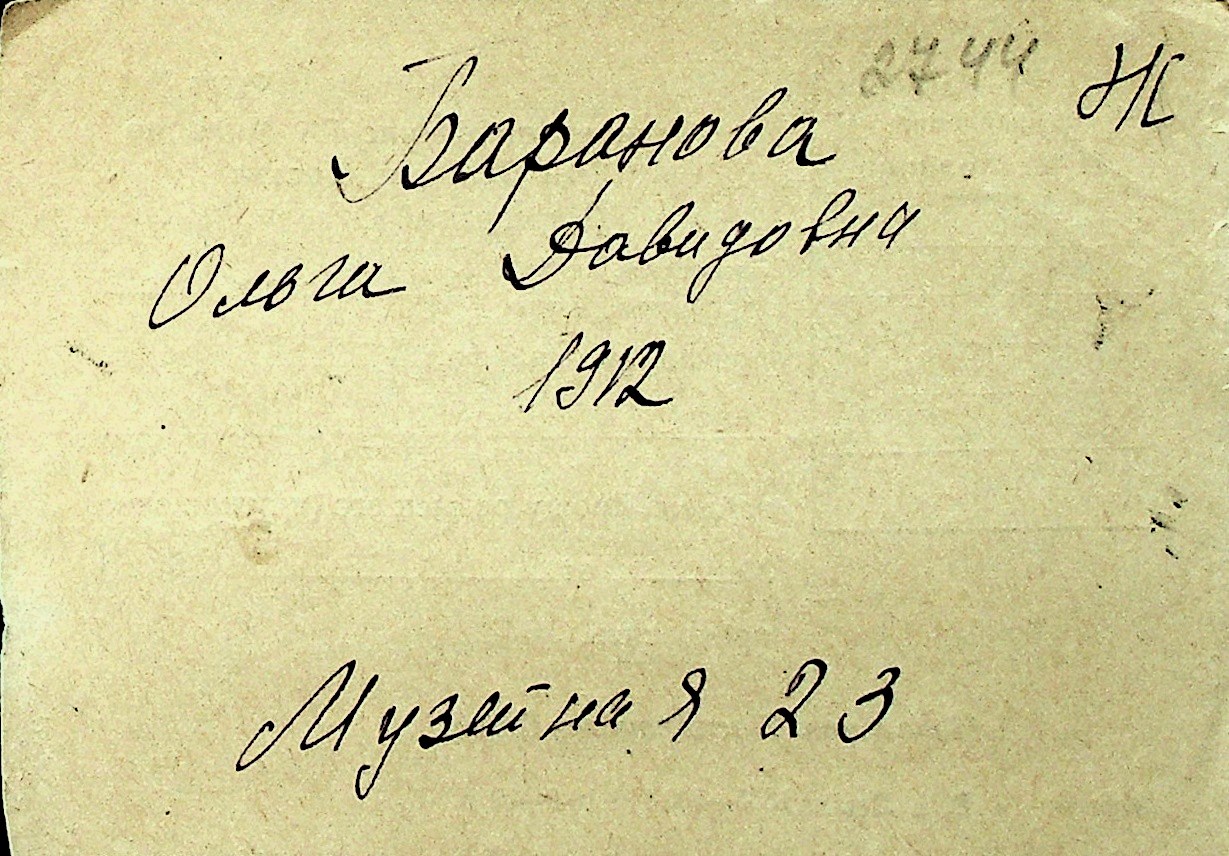 2744 Ж
Баранова
Ольга Давидовна
1912
Музейная 23